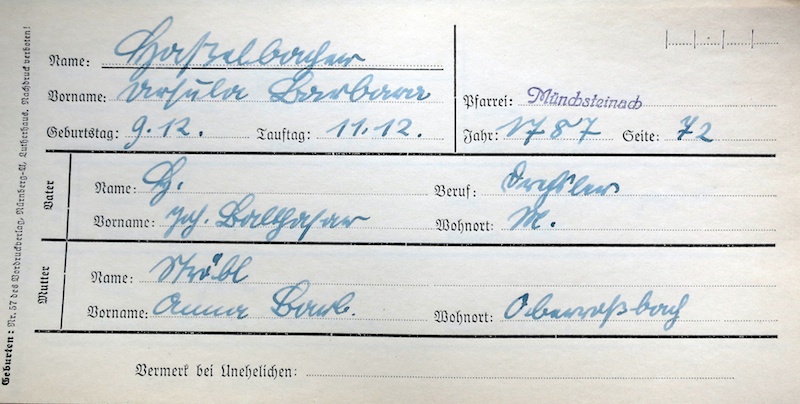 Name: Hastelbacher
Vorname: Ursula Barbara
Pfarrei: Münchsteinach
Geburtstag: 9.12. Tauftag: 11.12. Jahr: 1787 Seite: 72
Vater
Name: H. Beruf: Drechsler
Vorname: Joh. Balthasar Wohnort: M.
Mutter
Name: Ströbl
Vorname: Anna Barb. Wohnort: Oberroßbach
Vermerk bei Unehelichen:
Geburten: Nr. 57 des Vordruckverlag, Nürnberg-A, Lutherhaus. Nachdruck verboten!